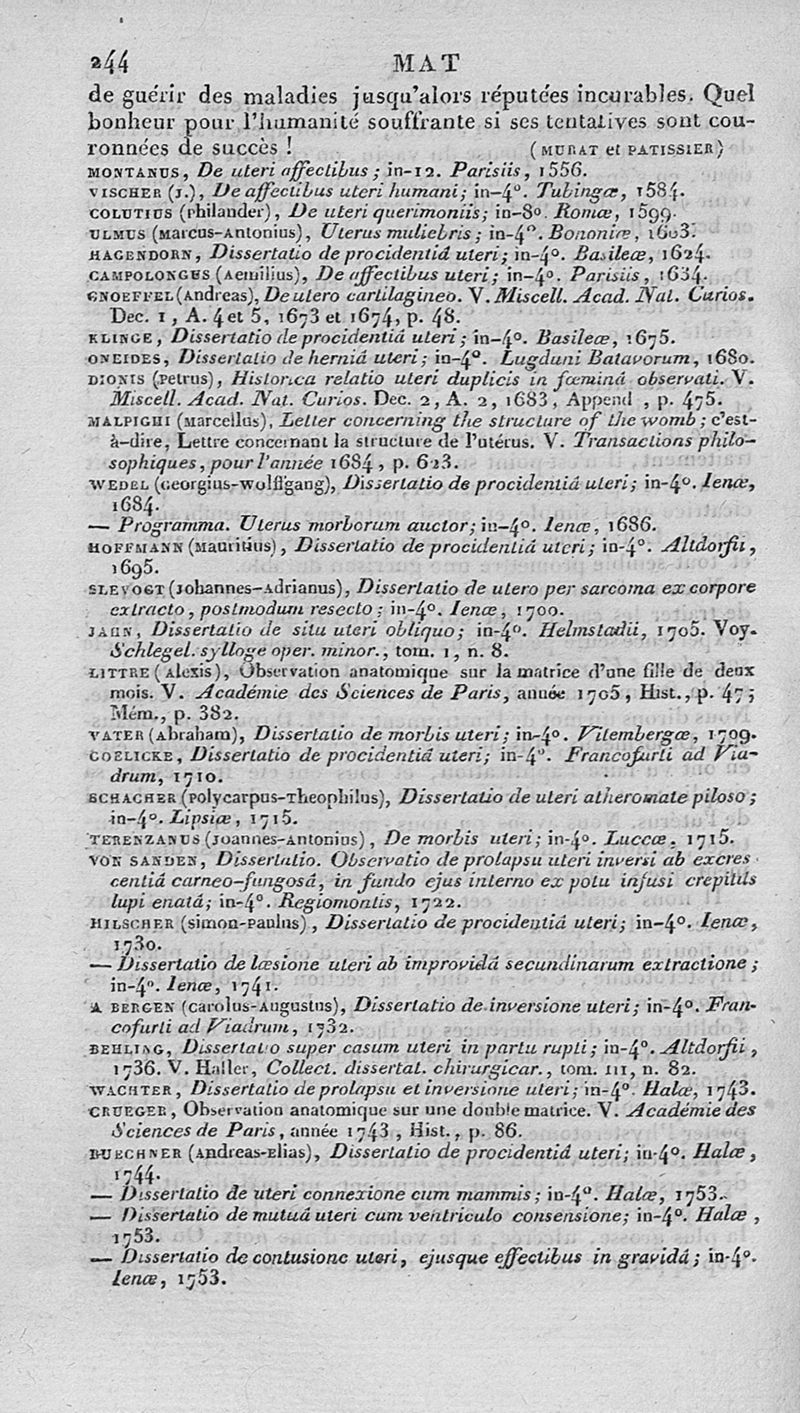 244 MAT
de guérir des maladies jusqu'alors réputées incurables. Quel
bonheur pour l'humanité souffrante si ses tentatives sont cou-
ronnées de succès ! (MURAT et PATISSIER)
MONTANUS, De uteri affectibus; in-12. Parisiis, 1556.
VISCHER (J.), De affectibus uteri humani; in-4°. Tubingæ, 1584.
COLUTIUS (Philander), De uteri querimoniis; in-8°. Romæ, 1599.
ULMUS (Marcus-Antonius), Uterus muliebris; in-4°. Bononiæ, 1603.
HAGENDORN, Dissertatio de procidentiâ uteri; in-4°. Basileæ, 1624.
CAMPOLONGUS (Aemilius), De affectibus uteri; in-4°. Parisiis, 1634.
GNOEFFEL (Andreas), De utero cartilagineo. V. Miscell. Acad. Nat. Curios.
Dec. 1, A. 4 et 5, 1673 et 1674, p. 48.
KLINGE, Dissertatio de procidentiâ uteri; in-4°. Basileæ, 1675.
ONEIDES, Dissertatio de herniâ uteri; in-4°. Lugduni Batavorum, 1680.
DIONIS (Petrus), Historica relatio uteri duplicis in fœminâ observati. V.
Miscell. Acad. Nat. Curios. Dec. 2, A. 2, 1683, Append., p. 475.
MALPIGHI (Marcellus), Letter concerning the structure of the womb; c'est-
à-dire, Lettre concernant la structure de l'utérus. V. Transactions philo-
sophiques, pour l'année 1684, p. 623.
WEDEL (Georgius-Wolffgang), Dissertatio de procidentiâ uteri; in-4°. Ienæ,
1684.
— Programma. Uterus morborum auctor; in-4°. Ienæ, 1686.
HOFFMANN (Mauritius), Dissertatio de procidentiâ uteri; in-4°. Altdorfii,
1695.
SLEVOGT (Johannes-Adrianus), Dissertatio de utero per sarcoma ex corpore
extracto, postmodum resecto; in-4°. Ienæ, 1700.
JAHN, Dissertatio de situ uteri obliquo; in-4°. Helmstadii, 1705. Voy.
Schlegel. sylloge oper. minor., tom. 1, n. 8.
LITTRE (Alexis), Observation anatomique sur la matrice d'une fille de deux
mois. V. Académie des Sciences de Paris, année 1705, Hist., p. 47;
Mém., p. 382.
VATER (Abraham), Dissertatio de morbis uteri; in-4°. Vitembergæ, 1709.
GOELICKE, Dissertatio de procidentiâ uteri; in-4°. Francofurti ad Via-
drum, 1710.
SCHACHER (Polycarpus-Theophilus), Dissertatio de uteri atheromate piloso;
in-4°. Lipsiæ, 1715.
TERENZANUS (Joannes-Antonius), De morbis uteri; in-4°. Luccæ, 1715.
VON SANDEN, Dissertatio. Observatio de prolapsu uteri inversi ab excres-
centiâ carneo-fungosâ, in fundo ejus interno ex potu infusi crepitûs
lupi enatâ; in-4°. Regiomontis, 1722.
HILSCHER (Simon-Paulus), Dissertatio de procidentiâ uteri; in-4°. Ienæ,
1730.
— Dissertatio de læsione uteri ab improvidâ secundinarum extractione;
in-4°. Ienæ, 1741.
A BERGEN (Carolus-Augustus), Dissertatio de inversione uteri; in-4°. Fran-
cofurti ad Viadrum, 1732.
BEHLING, Dissertatio super casum uteri in partu rupti; in-4°. Altdorfii,
1736. V. Haller, Collect. dissertat. chirurgicar., tom. III, n. 82.
WACHTER, Dissertatio de prolapsu et inversione uteri; in-4°. Halæ, 1743.
CRUEGER, Observation anatomique sur une double matrice. V. Académie des
Sciences de Paris, année 1743, Hist., p. 86.
BUECHNER (Andreas-Elias), Dissertatio de procidentiâ uteri; in-4°. Halæ,
1744.
— Dissertatio de uteri connexione cum mammis; in-4°. Halæ, 1753.
— Dissertatio de mutuâ uteri cum ventriculo consensione; in-4°. Halæ,
1753.
— Dissertatio de contusione uteri, ejusque effectibus in gravidâ; in-4°.
Ienæ, 1753.